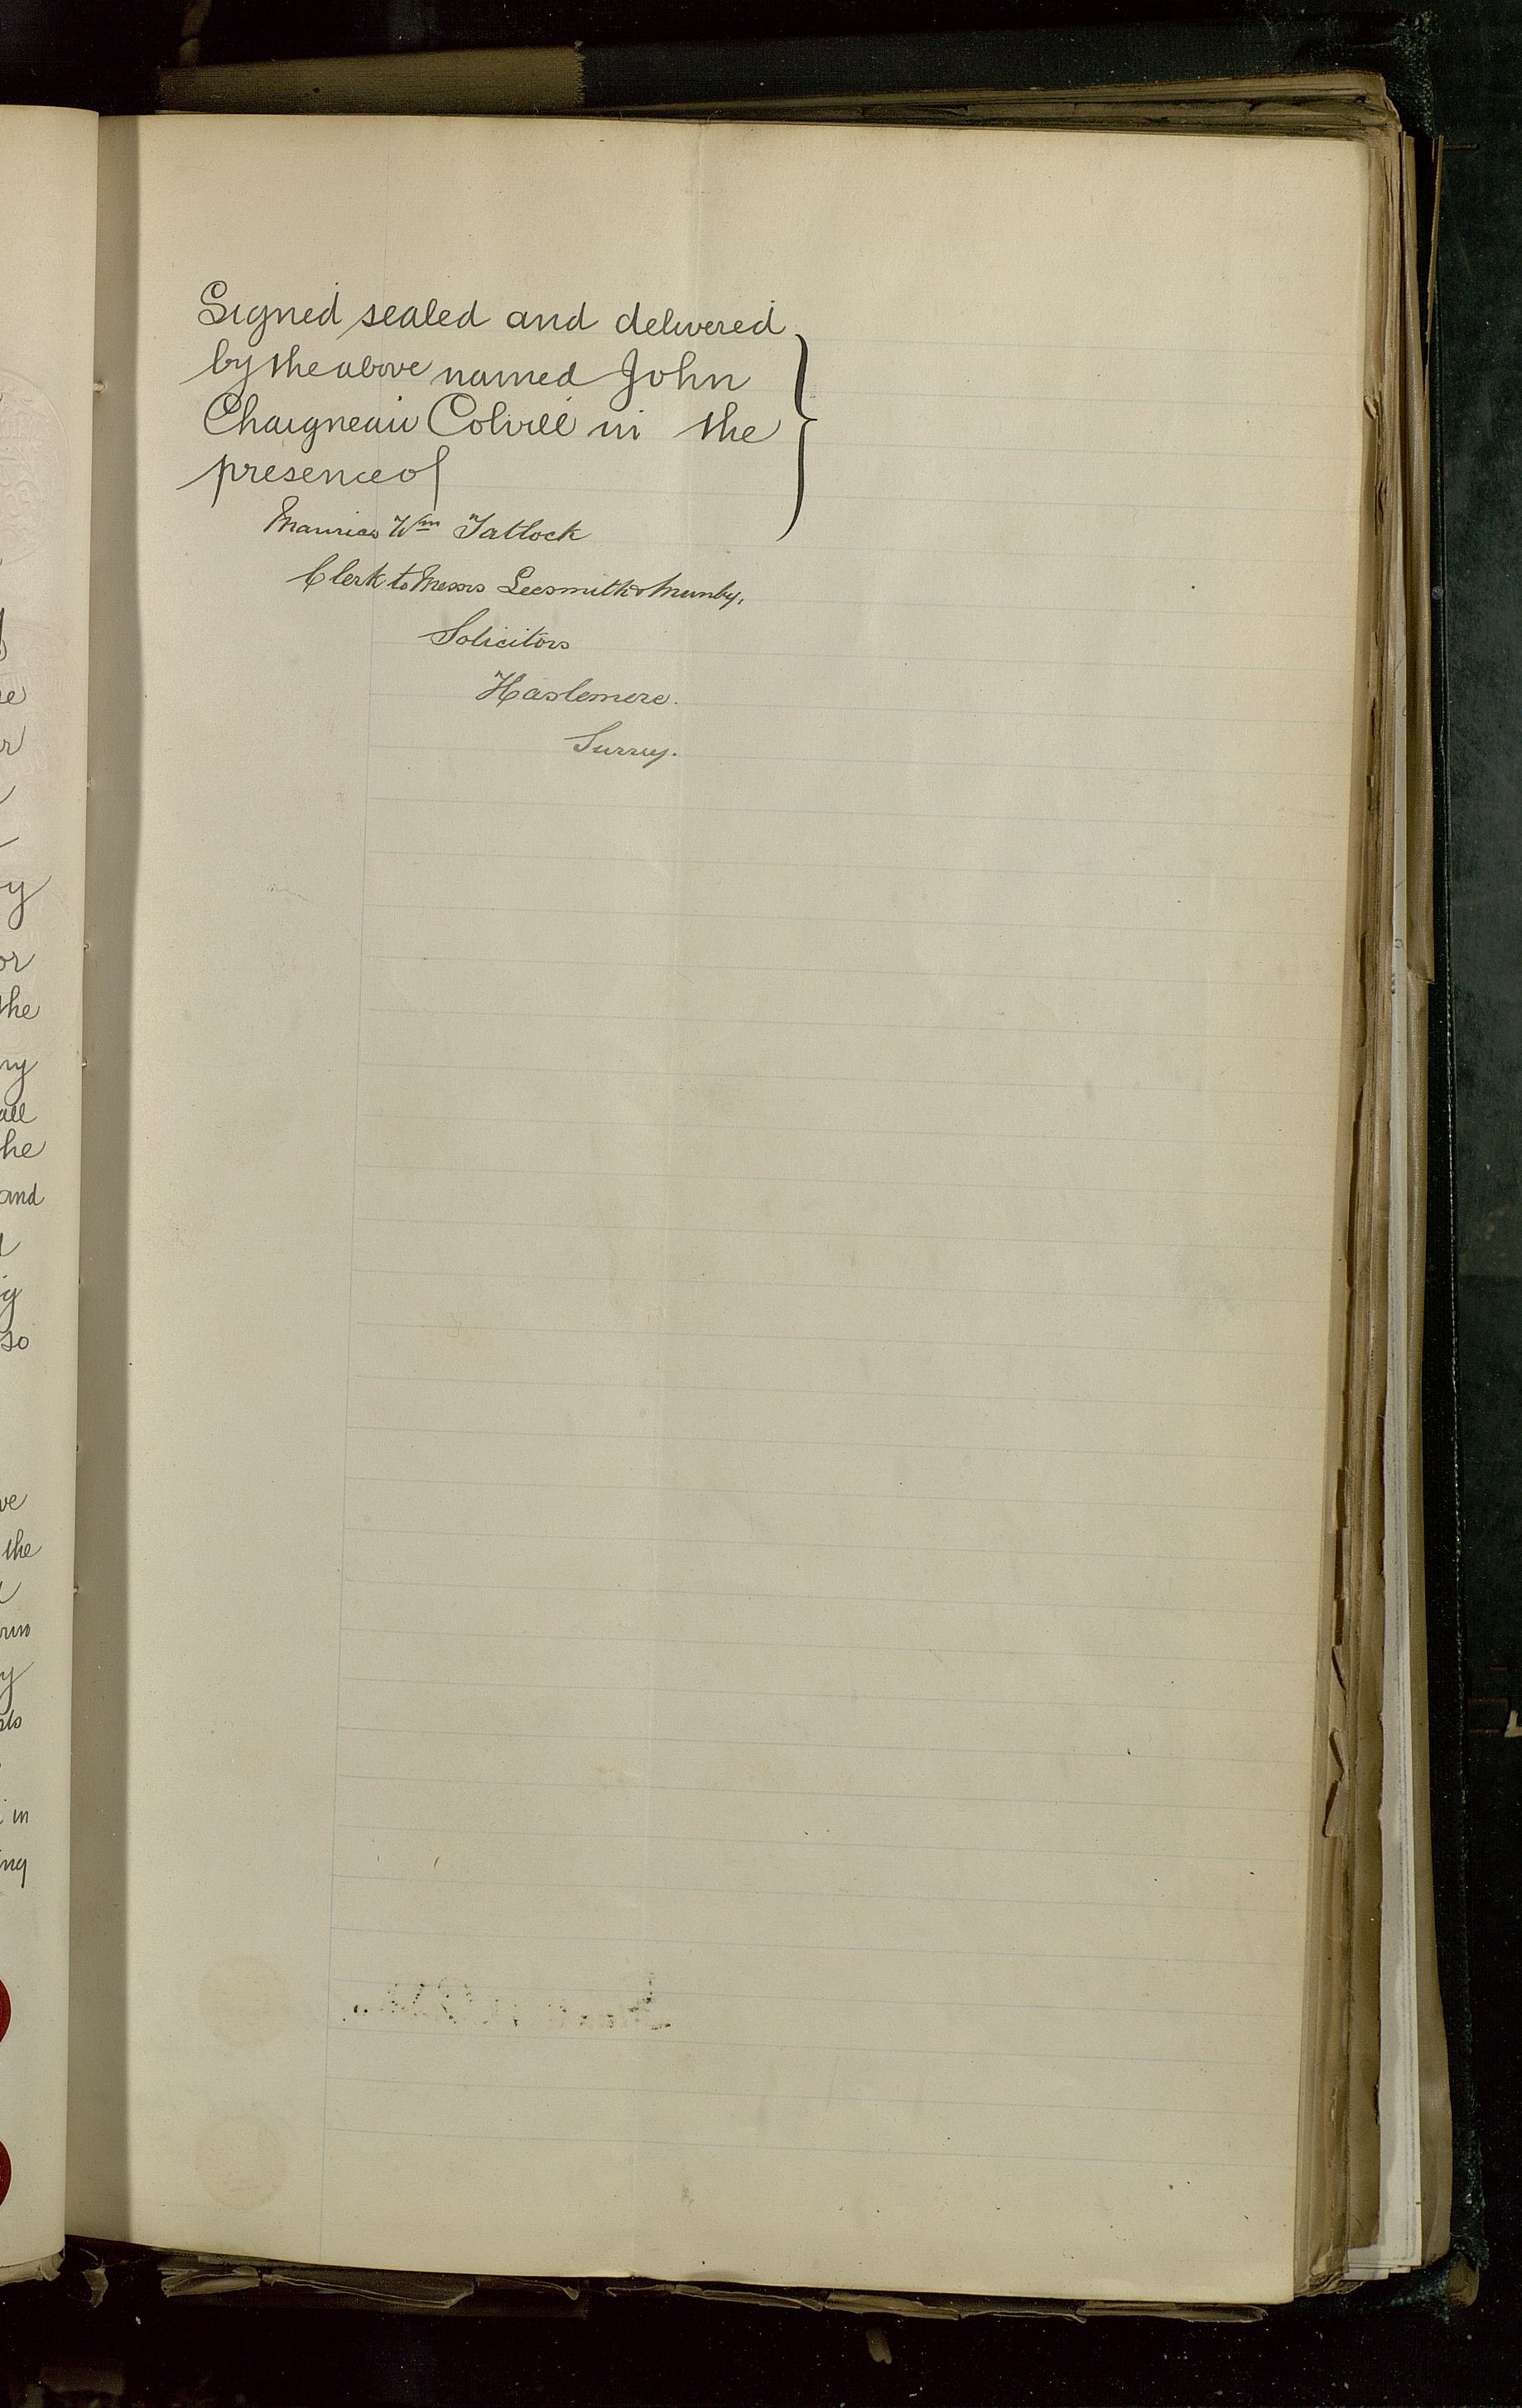 Signed sealed and delivered
by the above named John
Chaigneau Colvill in the
presence of
Maurice Wm Tatlock
Clerk to Messrs Leesmith & Munby,
Solicitors
Haslemere.
Surrey.
re
or
the
all
he
and
so
ve
the
in